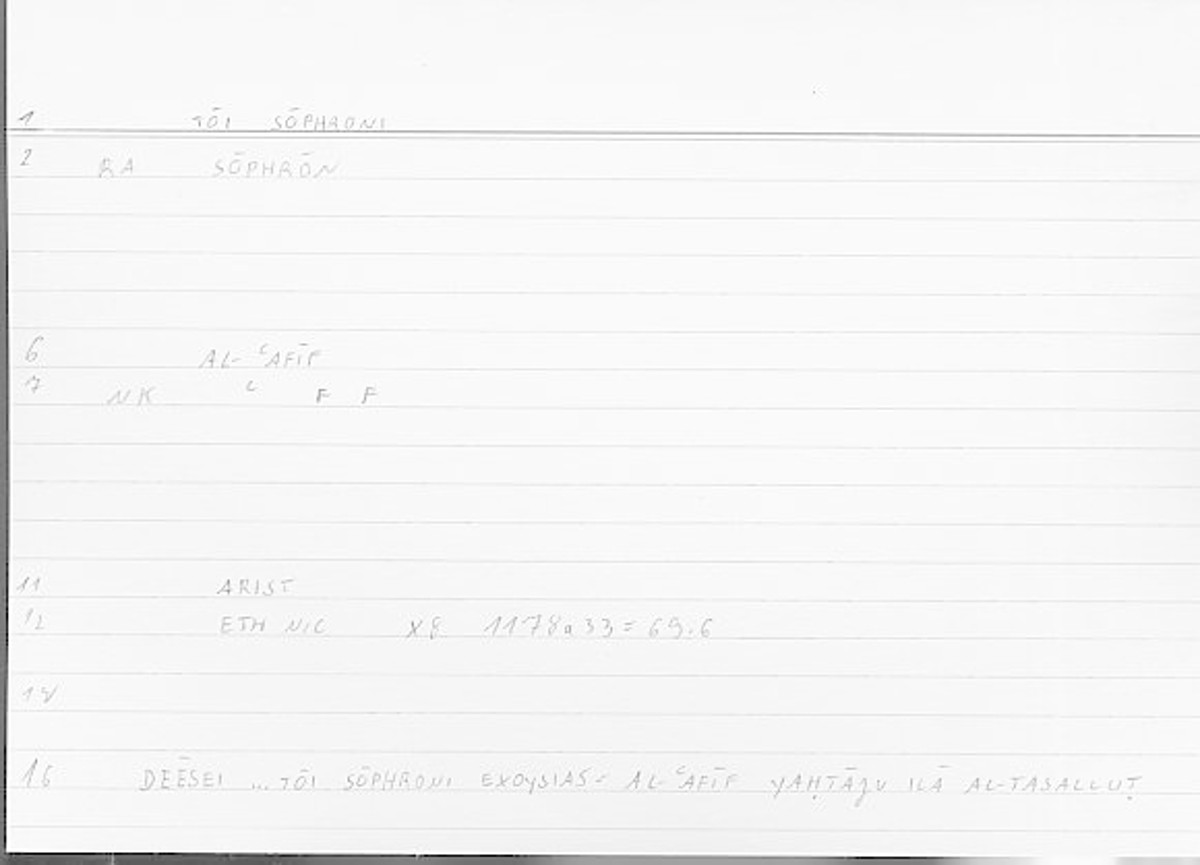 1 TŌI SŌPHRONI
2 RA SŌPHRŌN
6 AL-ʿAFĪF
7 NK ʿ F F
11 ARIST
12 ETH NIC X8 1178a33=69.6
16 DEĒSEI ... TŌI SŌPHRONI EXOYSIAS= AL-ʿAFĪF YAḤTĀǦU ILĀ AL-TASALLUṬ